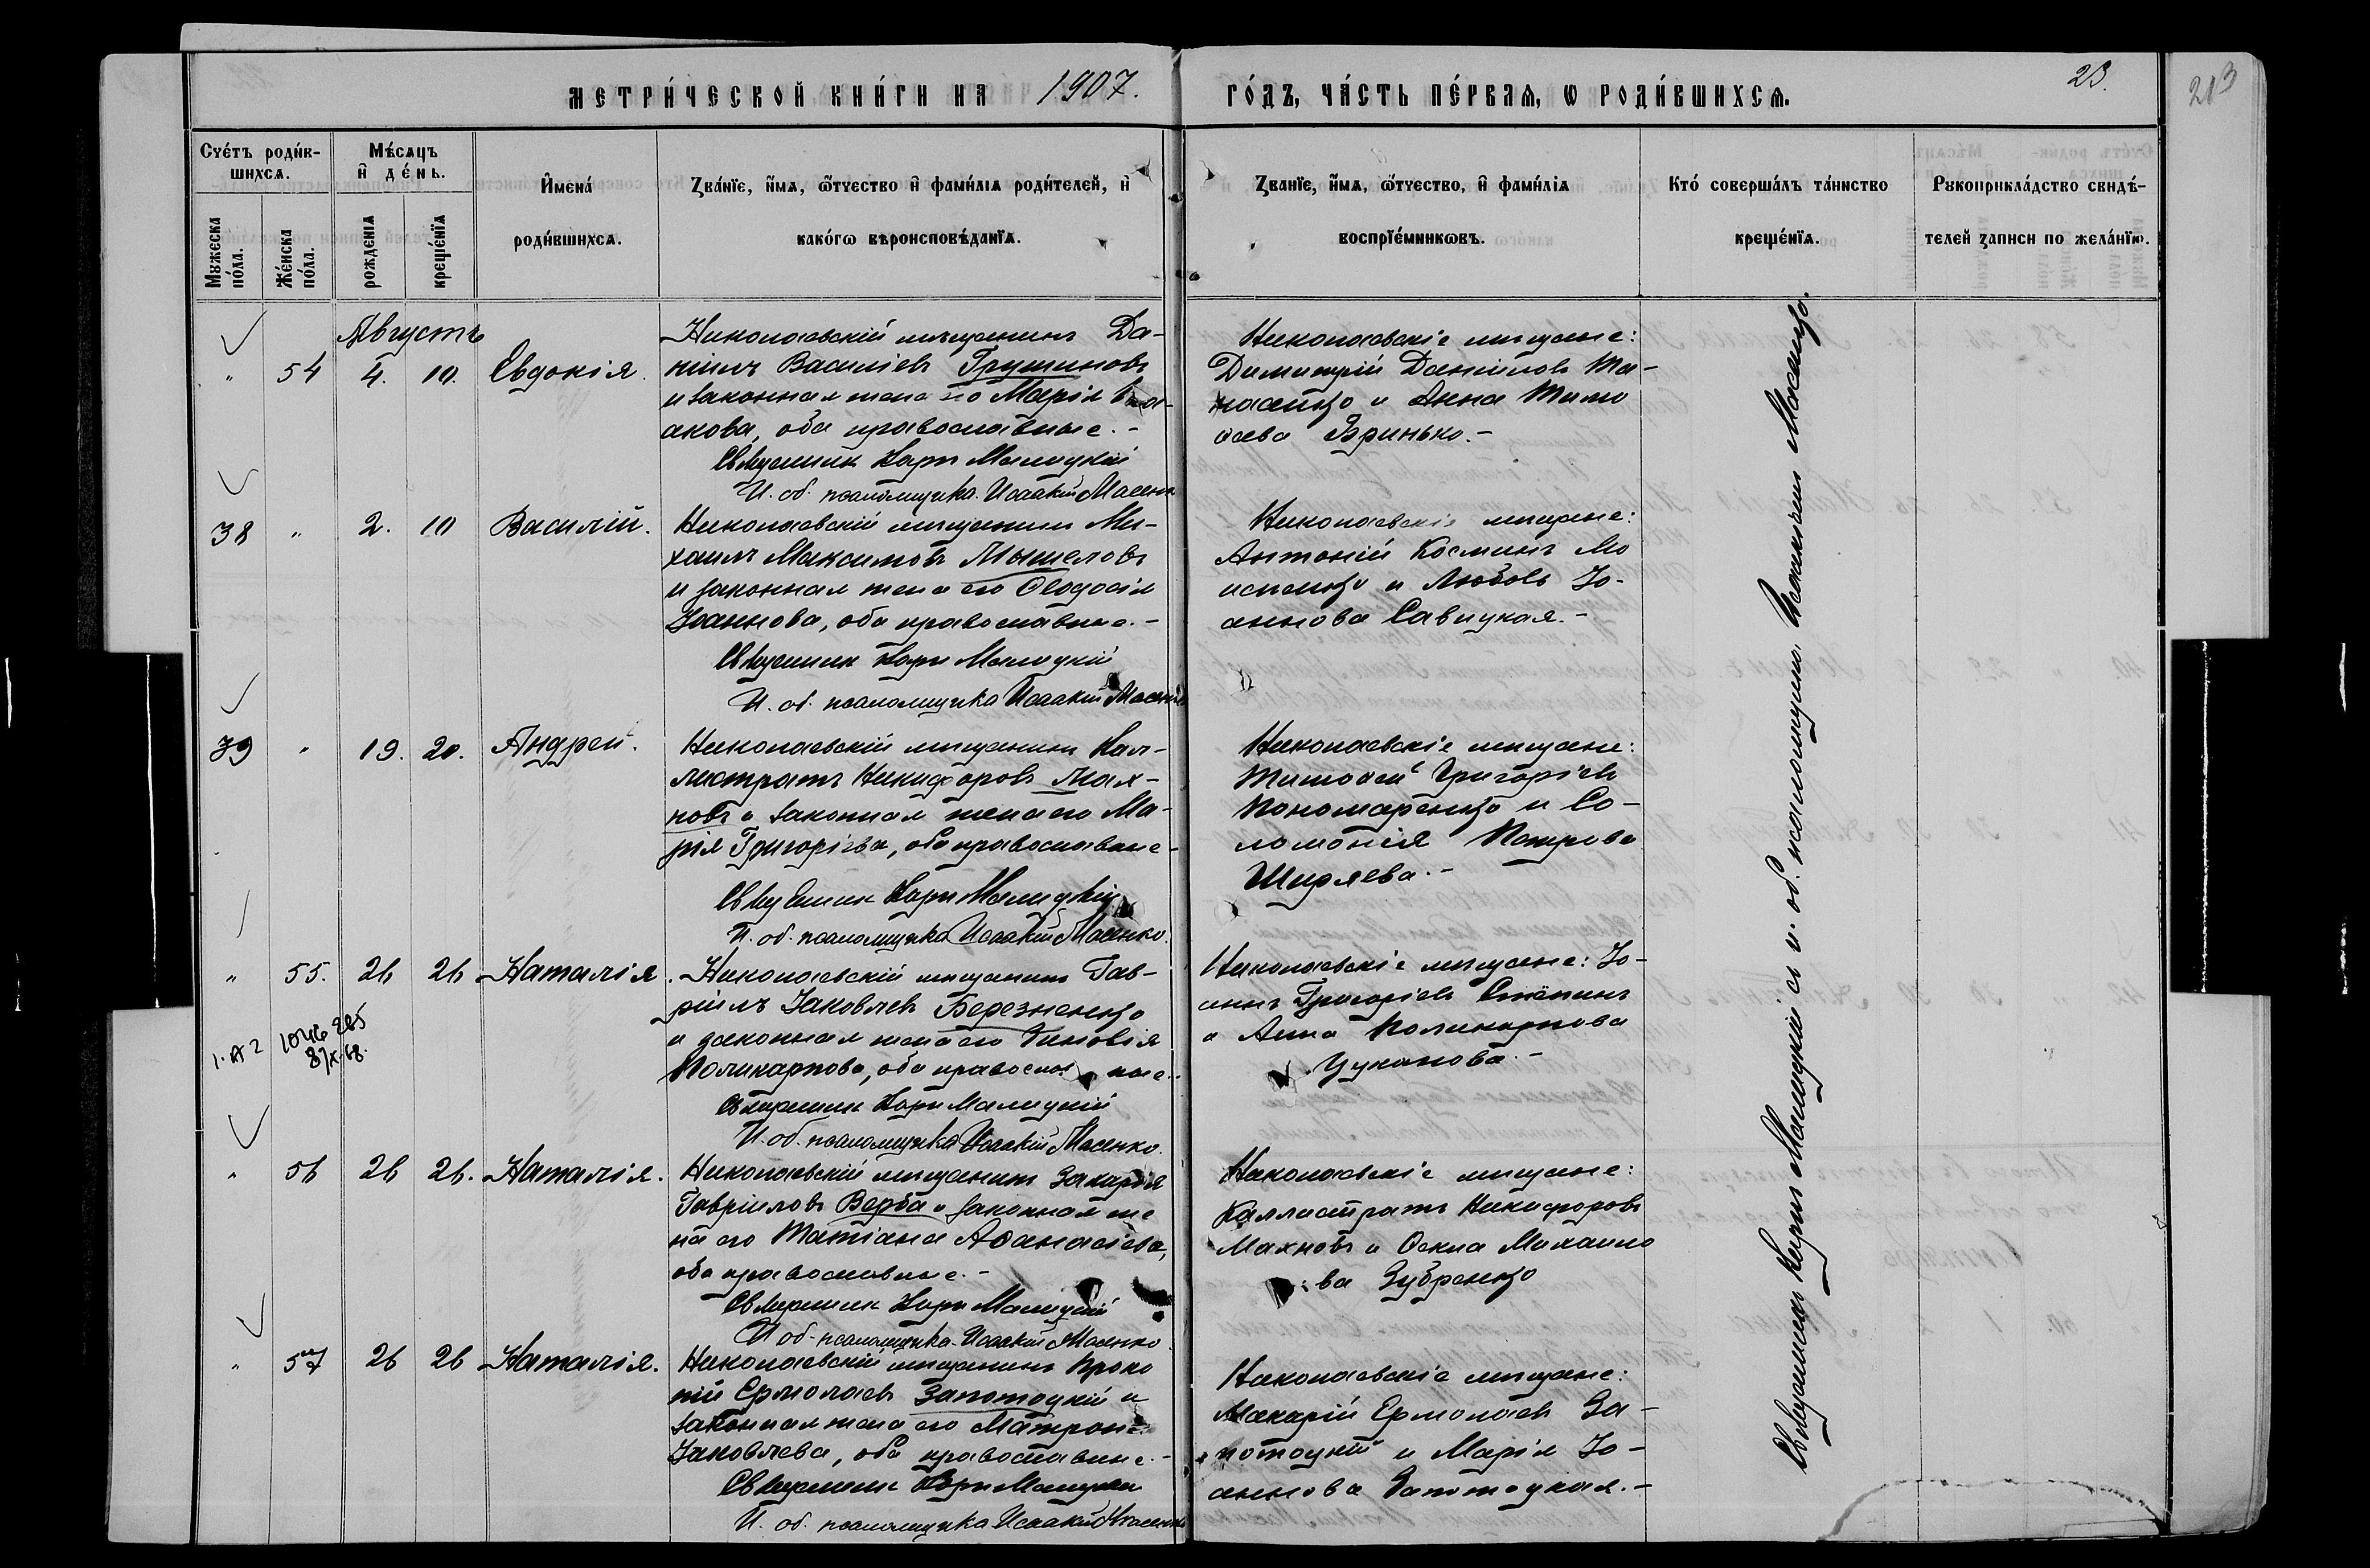 МЕТРИ́ЧЕСКОЙ КНИ́ГИ НА 1907.
ГО́ДЪ, ЧА́СТЬ ПЕ́РВАЯ, Ѡ РОДИ́ВШИХСЯ.
23.
213
Сче́тъ роди́в-
шихся.
Мужеска по́ла.
Же́нска по́ла.
Мѣ́сяцъ
и҆ де́нь.
рожде́нїя
креще́нїя
И҆мена́
роди́вшихся.
Зва́нїе, и҆́мя, ѻ҆́тчество и҆ фами́лїя роди́телей, и҆
како́гѡ вѣроисповѣ́данїя.
Зва́нїе, и҆́мя, ѻ҆́тчество, и҆ фами́лїя
воспрїе́мникѡвъ.
Кто́ соверша́лъ та́инство
креще́нїя.
Рукоприкла́дство свидѣ́-
телей записи по жела́нїю.
Августъ
" 54 4. 10. Евдокія.
Николаевскій мѣщанинъ Да-
ніилъ Василіевъ Грушиновъ
и законная жена его Марія
акова, оба православные.-
Священникъ Карпъ Малицкій
И. об. псаломщика Исаакій Масенко
Николаевскіе мѣщане:
Димитрій Даніиловъ
и Анна Тимо
ѳеева Гринько.-
38 " 2. 10 Василій.
Николаевскій мѣщанинъ Ми-
хаилъ Максимовъ Мышеловъ
и законная жена его Ѳеодосія
Іоаннова, оба православные.-
Священникъ Карпъ Малицкій
И. об. псаломщика Исаакій Масенко
Николаевскіе мѣщане:
Антоній Косминъ Мо
исеенко и Любовь Іо-
аннова Савицкая.-
39 " 19. 20. Андрей.
Николаевскій мѣщанинъ Кал-
листратъ Никифоровъ Мах-
новъ и законная жена его Ма-
рія Григоріева, оба православные-
Священникъ Карпъ Малицкій
И. об. псаломщика Исаакій Масенко.
Николаевскіе мѣщане:
Тимоѳей Григоріевъ
Пономаренко и Со-
ломонія Петрова
Ширяева.-
" 55. 26 26 Наталія.
Николаевскій мѣщанинъ Гав-
ріилъ Іаковлевъ Березненко
и законная жена его Зиновія
Поликарпова, оба православные.-
Священникъ Карпъ Малицкій
И. об. псаломщика Исаакій Масенко.
1046 285
8/X-68.
Николаевскіе мѣщане: Іо-
аннъ Григоріевъ Стёпинъ
и Анна Поликарпова
Цуканова.-
" 56 26 26. Наталія.
Николаевскій мѣщанинъ Захарія
Гавріиловъ Верба и законная же
на его Татіана Аѳанасіева,
оба православные.-
Священникъ Карпъ Малицкій
И об. псаломщика Исаакій Масенко
Николаевскіе мѣщане:
Каллистратъ Никифоровъ
Махновъ и Ѳекла Михаило
ва Зубренко
" 57 26 26 Наталія.
Николаевскій мѣщанинъ Проко
пій Ермолаевъ Запотоцкій и
законная жена его Матрона
Іаковлева, оба православные.-
Священникъ Карпъ Малицкій
И. об. псаломщика Исаакій Масенко
Николаевскіе мѣщане:
Макарій Ермолаевъ За-
потоцкій и Марія Іо-
аннова Запотоцкая.-
Священникъ Карпъ Малицкій съ и. об. псаломщика Исаакіемъ Масенко.